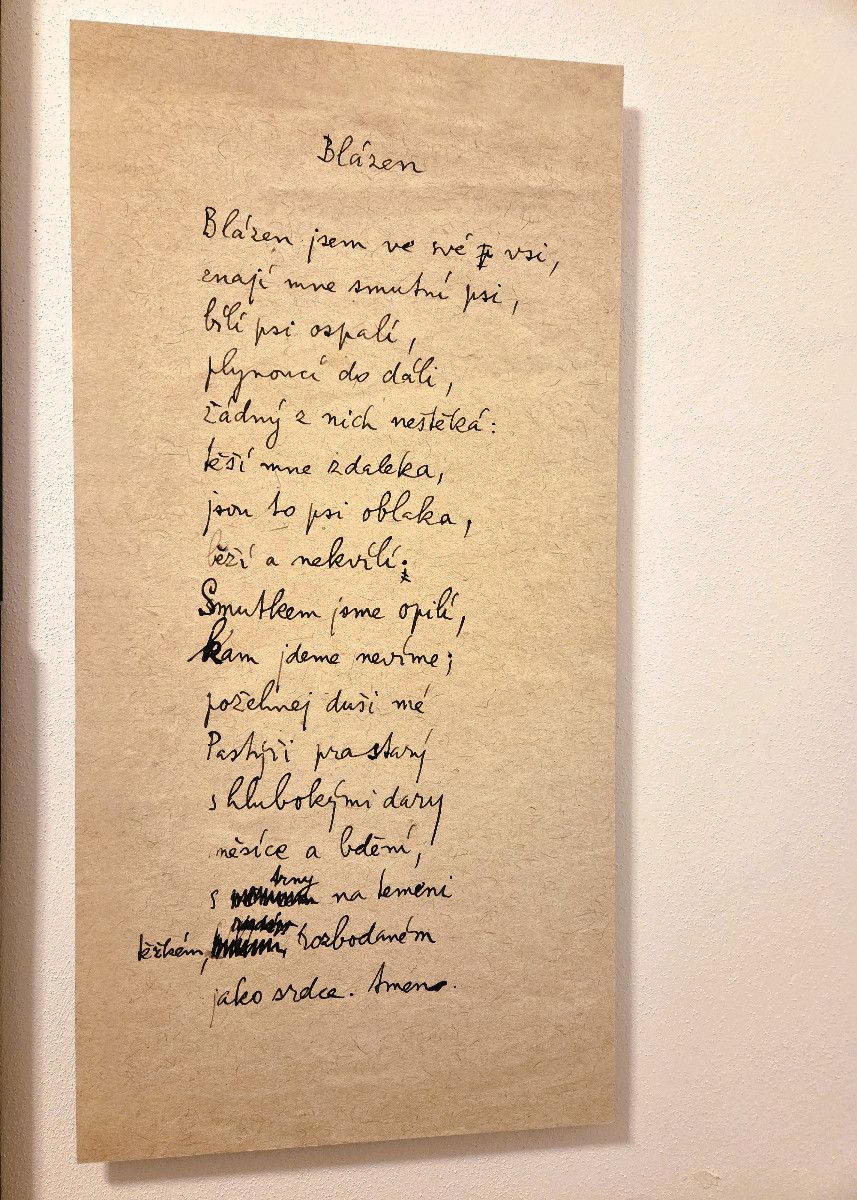 Blázen
Blázen jsem ve své vsi,
znají mne smutní psi,
bílí psi ospalí,
plynoucí do dáli,
žádný z nich neštěká:
těší mne zdaleka,
jsou to psi oblaka,
běží a nekvílí;
Smutkem jsme opilí,
kam jdeme nevíme;
požehnej duši mé
Pastýři prastarý
s hlubokými dary
měsíce a bdění,
s trny na temeni
těžkém, rozbodaném
jako srdce. Amen.